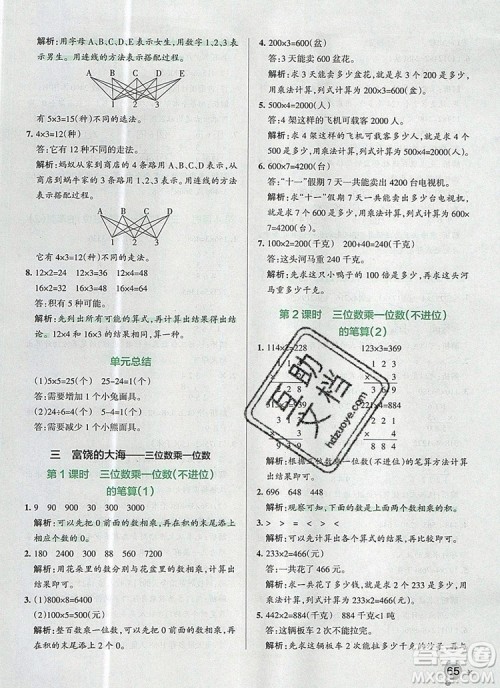 解析：用字母 A、B、C、D、E 表示女生。用数字 1、2、3 表
示男生。用连线的方法表示搭配过程。
A B C D E
1 2 3
有 5×3=15(种)不同的选法。
7. 4×3=12(种)
答：它有 12 种不同的走法。
解析：蚂蚁从家到商店的 4 条路用 A、B、C、D 表示，从商
店到蜗牛家的 3 条路用数字 1、2、3 表示。用连线的方
法表示搭配过程。
1 2 3
它有 4×3=12(种)不同的走法。
8. 12×2=24 12×3=36 12×4=48
16×2=32 16×3=48 16×4=64
答：积有 5 种可能。
解析：先写出所有可能的算式，再计算出结果，根据计算
结果可知。12×4 和 16×3 的结果相同。
单元总结
(1)5×5=25(个) 25-24=1(个)
答：需要增加 1 个小鱼面具。
(2)24÷6=4(个) 5-4=1(个)
答：需要减少 1 个小熊面具。
三 富饶的大海——三位数乘一位数
第 1 课时 三位数乘一位数(不进位)
的笔算(1)
1. 9 90 900
解析：可以先把前面的数相乘，再在积的末尾添上相
应个数的 0。
2. 180 2400 300 280 4000 3600
解析：用花朵里的数分别与花盆里的数相乘，计算出
结果即可。
3. (1)800×8=6400
(2)100×5=500
解析：整百数乘一位数，可以先把 0 前面的数相乘，再
在积的末尾添上两个 0。
4. 200×3=600(盆)
答：3 天能卖出 600 盆花。
解析：求 3 天能卖多少盆花，就是求 3 个 200 是多少，
用乘法计算，列式计算为 200×3=600(盆)。
5. 500×4=2000(人)
答：4 架这样的飞机可以乘坐 2000 人。
解析：求 4 架这样的飞机可以乘坐多少人，就是求 4
个 500 是多少，用乘法计算，列式计算为 500×4=
2000(人)。
6. 600×7=4200(台)
答：“十一”假期 7 天一共能卖出 4200 台电视机。
解析：求“十一”假期 7 天一共能卖出多少台电视机，就
是求 7 个 600 是多少，用乘法计算，列式计算为 600×
7=4200(台)。
7. 100×2=200(千克) 200+40=240(千克)
答：这头河马重 240 千克。
解析：先求这只小鸭子的 2 倍是多少千克，再加上 40
千克即可。
第 2 课时 三位数乘一位数(不进位)
的笔算(2)
1. 114×2=228 123×3=369
1 2 3
× 3
3 6 9
221×4=884
2 2 1
× 4
8 8 4
解析：观察可知，下面的数是上面两个数的积。
4. 233×2=466(元)
答：一共花了 466 元。
解析：求一共花了多少元，就是求 2 个 233 是多少，用
乘法计算，列式计算为 233×2=466(元)。
答：这辆板车 2 次不能拉完。
65
互助文档
hdzuoye.com